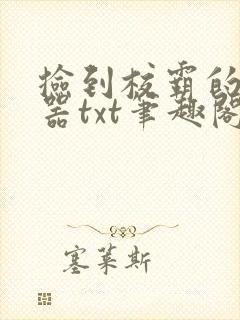 捡到校霸的
器txt笔趣阁
塞莱斯